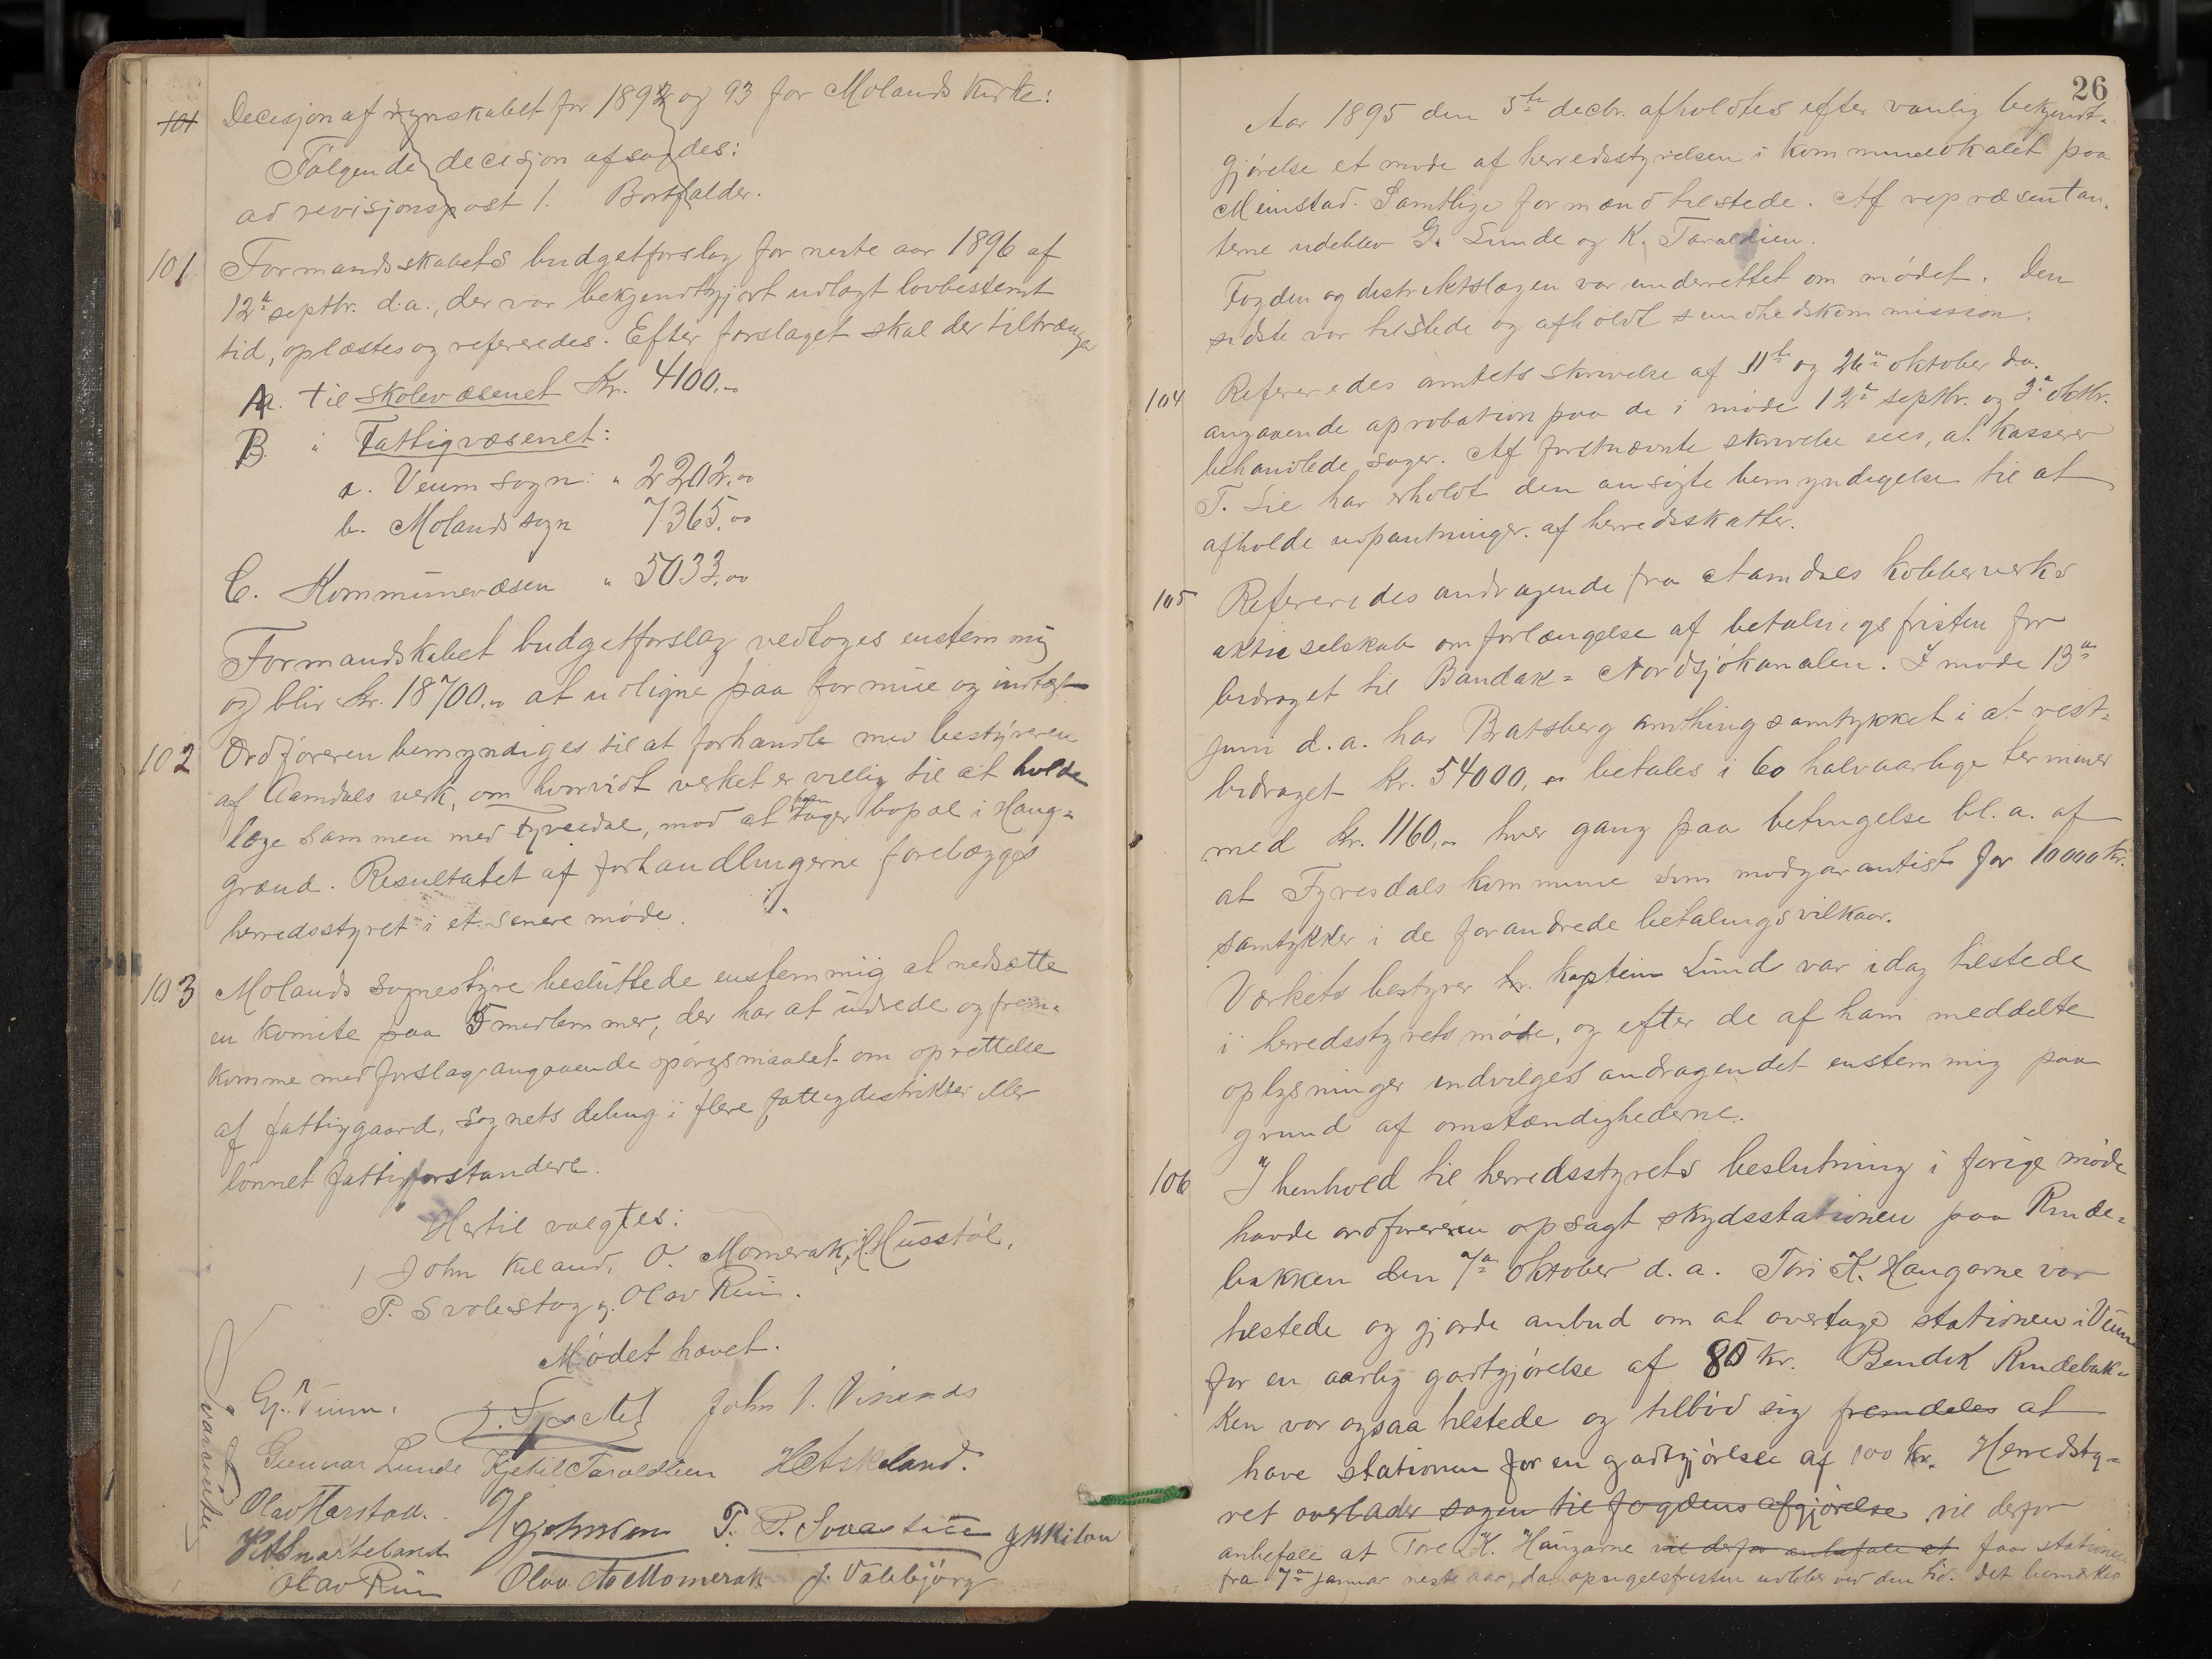 101 Decisjon af regnskabet for 1892 og 93 for Molands kirke:
Følgende decisjon afsagdes:
ad revisjonspost 1. Bortfalder.
101 Formandsskabets budgetforslag for neste aar 1896 af
12te septbr. d.a., der var bekjendtgjort udlagt lovbestemt
tid, oplæstes og refereredes. Efter forslaget skal der tiltrænges
A. til skolevæsenet Kr. 4100.00
B. " Fattigvæsenet:
a. Veum sogn: " 2202.00
b. Molands sogn 7365.00
C. Kommunevæsen " 5033.00
Formandskabet budgetforslag vedtoges enstemmig
og blir Kr. 18700.00 at udligne paa formue og indtægt
102 Ordføreren bemyndiges til at forhandle med bestyreren
af Aamdals verk, om hvorvidt verket er villig til at holde
læge sammen med Fyresdal, mod at han tager bopæl i Haug=
grænd. Resultatet af forhandlingerne forelægges
herredsstyret i et senere møde.
103 Molands sognestyre besluttede enstemmig at nedsætte
en komite paa 5 medlemmer, der har at udrede og frem=
komme med forslag angaaende spørgsmaalet om oprettelse
af fattiggaard, sognets deling i flere fattigdistrikter eller
lønnet fattigforstandere.
Hertil valgtes:
John Kiland, O. Momerak, H. Husstøl,
P. Svolestog og Olav Rui.
Mødet hævet.
G. Veum.
John
Gunnar Lunde Kjetil Taraldlien H Askeland.
Olav Harstad.
Olav Rui Olav Momerak J. Valebjørg
26
Aar 1895 den 5te decbr. afholdtes efter vanlig bekjendt=
gjørelse et møde af herredsstyrelsen i kommunelokalet paa
Meinstad. Samtlige formænd tilstede. Af repræsentan=
terne udeblev G. Lunde og K. Taraldlien.
Fogden og distriktslægen var underrettet om mødet. Den
sidste var tilstede og afholdt sundhedskommission.
104 Refereredes amtets skrivelse af 11te og 26de oktober d.a.
angaaende aprobation paa de i møde 12te septbr. og 3de oktbr.
behandlede sager. Af førstnævnte skrivelse sees, at kasserer
T. Lie har erholdt den ansøgte bemyndigelse til at
afholde udpantninger af herredsskatter.
105 Refereredes andragende fra Aamdals kobberverks
aktieselskab om forlængelse af betalingsfristen for
bidraget til Bandak=Nordsjøkanalen. I møde 13de
juni d.a. har Bratsberg amthing samtykket i at rest=
bidraget kr. 54000,00 betales i 60 halvaarlige terminer
med kr. 1160,00 hver gang paa betingelse bl.a. af
at Fyresdals kommune som modgarantist for 10000 kr.
samtykker i de forandrede betalingsvilkaar.
Verkets bestyrer hr. kaptein Lund var idag tilstede
i herredsstyrets møde, og efter de af ham meddelte
oplysninger indvilges andragendet enstemmig paa
grund af omstændighederne.
106 I henhold til herredsstyrets beslutning i forige møde
havde ordføreren opsagt skydsstationen paa Runde=
bakken den 7de oktober d.a. Tore K. Haugarne var
tilstede og gjorde anbud om at overtage stationen i Veum
for en aarlig godtgjørelse af 80 kr. Bendik Rundebak=
ken var ogsaa tilstede og tilbød sig fremdeles at
have stationen for en godtgjørelse af 100 kr. Herredsty=
ret overlader sagen til fogdens afgjørelse vil derfor
anbefale at Tore K. Haugarne vil derfor anbefale at faar stationen
fra 7de januar neste aar, da opsigelsfristen udløber ved den tid. Det bemærkes